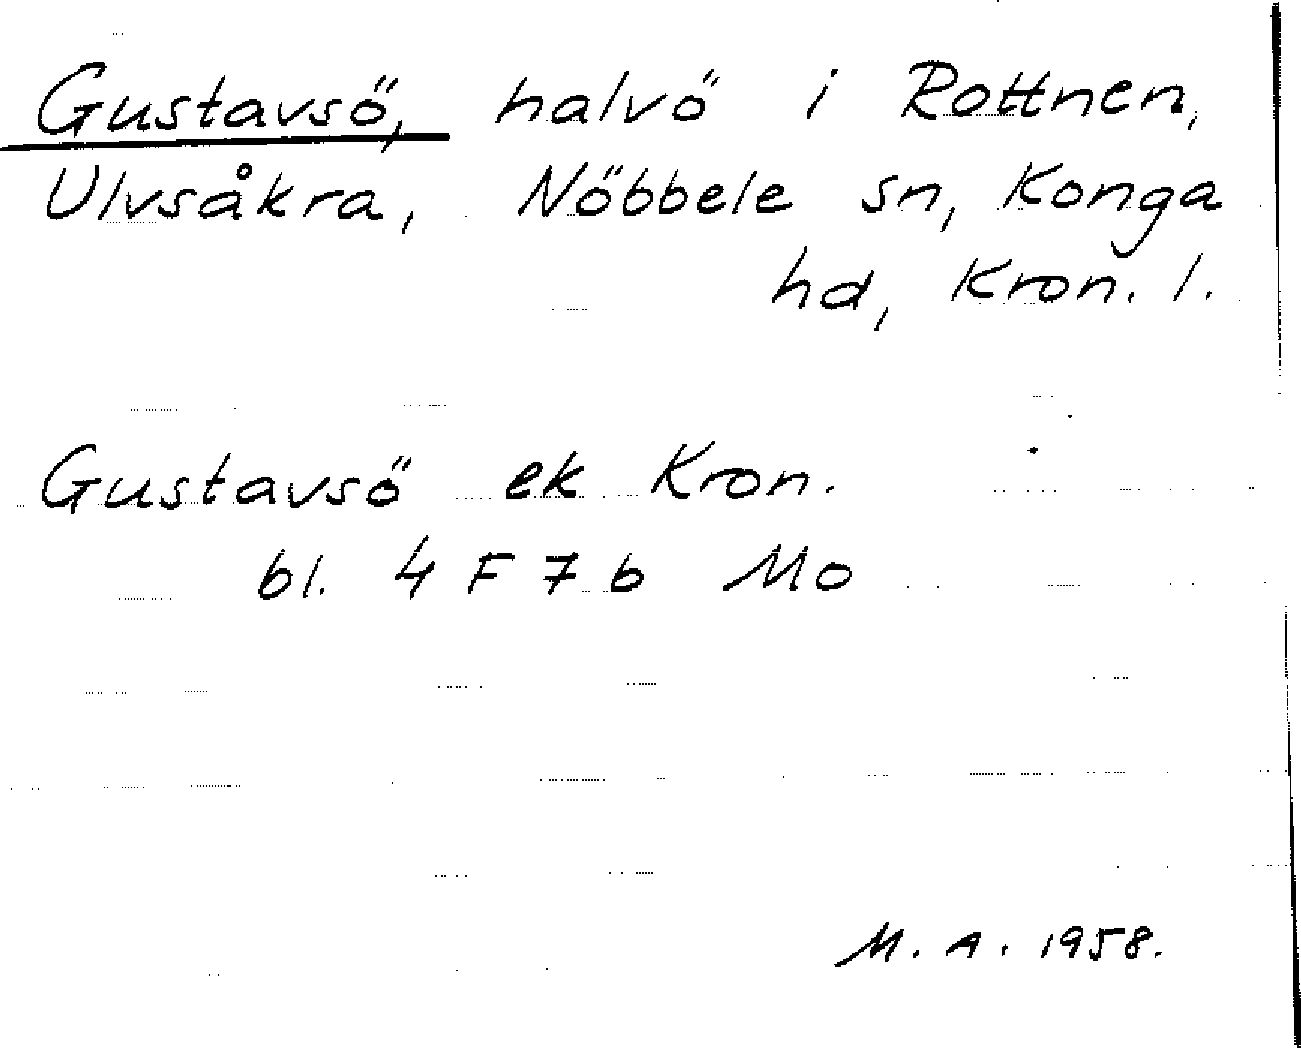 Gustavsö, halvö i Rottnen,
Ulvsåkra, Nöbbele sn, Konga
hd, Kron. l.
Gustavsö ek Kron.
bl. 4 F 7 b Mo
M. A. 1958.